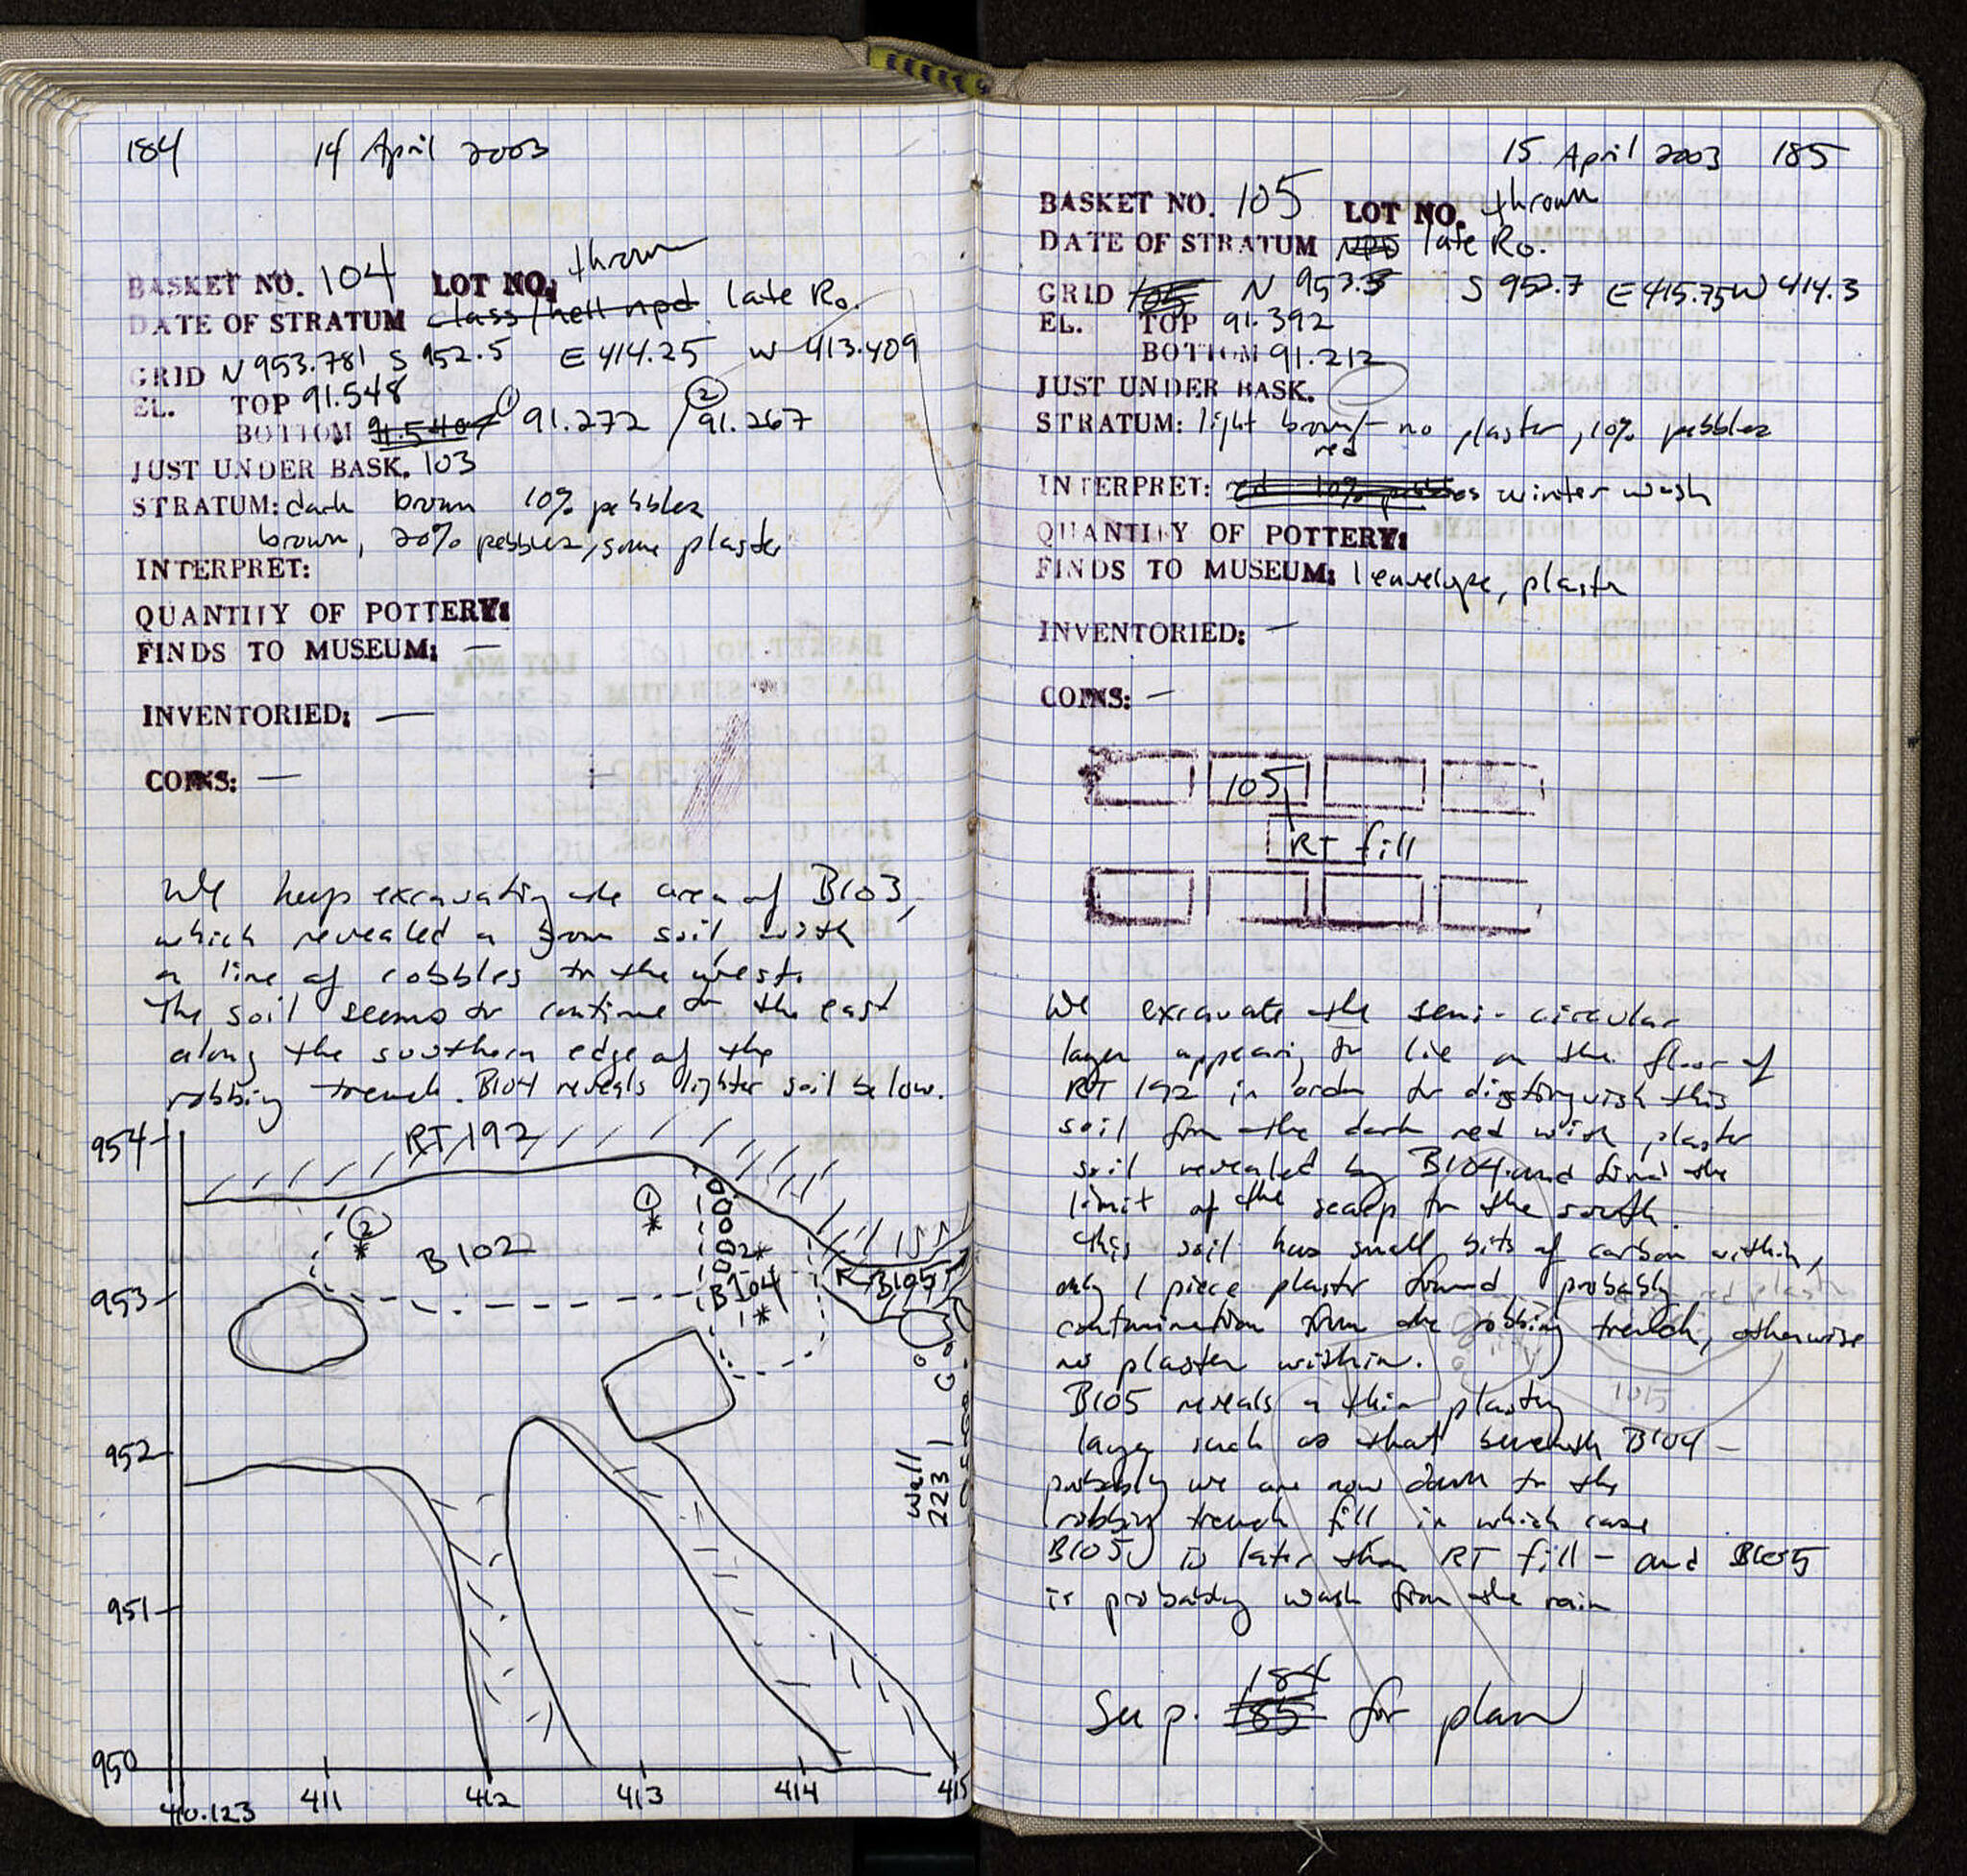 184 14 April 2003
BASKET NO. 104 LOT NO. thrown
DATE OF STRATUM class/hell npd late Ro.
GRID N 953.781 S 952.5 E 414.25 W 413.409
EL. TOP 91.548
BOTTOM ① 91.272 / ② 91.267
JUST UNDER BASK. 103
STRATUM: dark brown 10% pebbles
brown, 20% pebbles, some plaster
INTERPRET:
QUANTITY OF POTTERY:
FINDS TO MUSEUM: —
INVENTORIED: —
COINS: —
We keep excavating the area of B103,
which revealed a brown soil with
a line of cobbles to the west.
The soil seems to continue to the east
along the southern edge of the
robbing trench. B104 reveals lighter soil below.
954
RT 192
①
*
②
*
B102
2*
953
B104
B105
1*
952
Wall
223
951
950
410.123 411 412 413 414 415
15 April 2003 185
BASKET NO. 105 LOT NO. thrown
DATE OF STRATUM NPD late Ro.
GRID 105 N 953.3 S 952.7 E 415.75 W 414.3
EL. TOP 91.392
BOTTOM 91.212
JUST UNDER BASK.
STRATUM: light brown/- no plaster, 10% pebbles
red
INTERPRET: red 10% pebbles winter wash
QUANTITY OF POTTERY:
FINDS TO MUSEUM: 1 envelope, plaster
INVENTORIED: —
COINS: —
105
RT fill
We excavate the semi-circular
layer appearing to lie on the floor of
RT 192 in order to distinguish this
soil from the dark red with plaster
soil revealed by B104 and find the
limit of the scarp to the south.
This soil has small bits of carbon within,
only 1 piece plaster found, probably
contamination from the robbing trench, otherwise
no plaster within.
B105 reveals a thin plastery
layer such as that beneath B104 -
probably we are now down to the
robbing trench fill in which case
B105 is later than RT fill - and B105
is probably wash from the rain
See p. 185 184 for plan